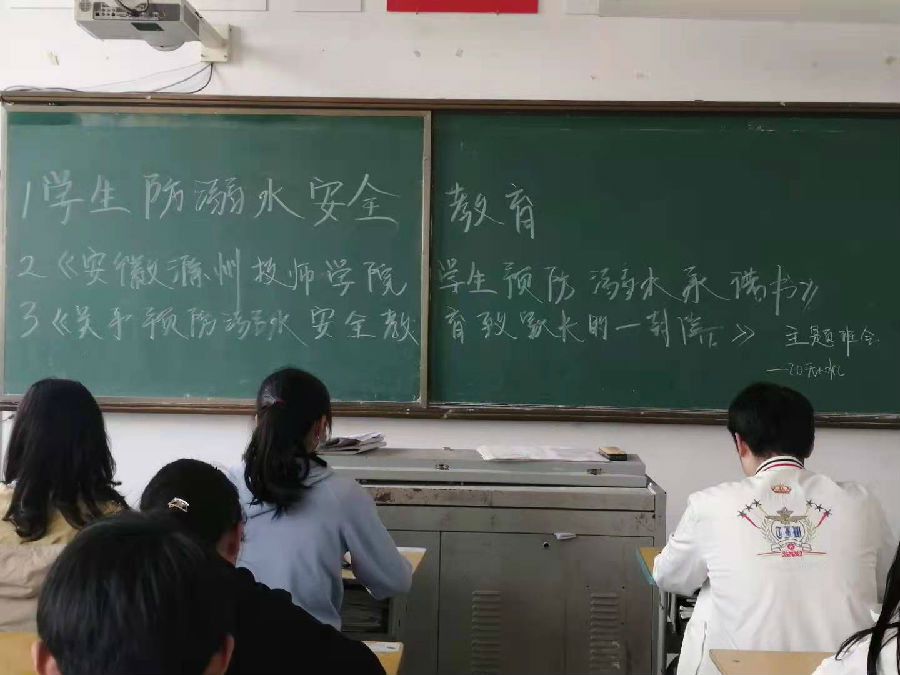 1学生防溺水安全教育
2《安徽滁州技师学院学生预防溺水承诺书》
3《关于预防溺水安全教育致家长的一封信》
主题班会